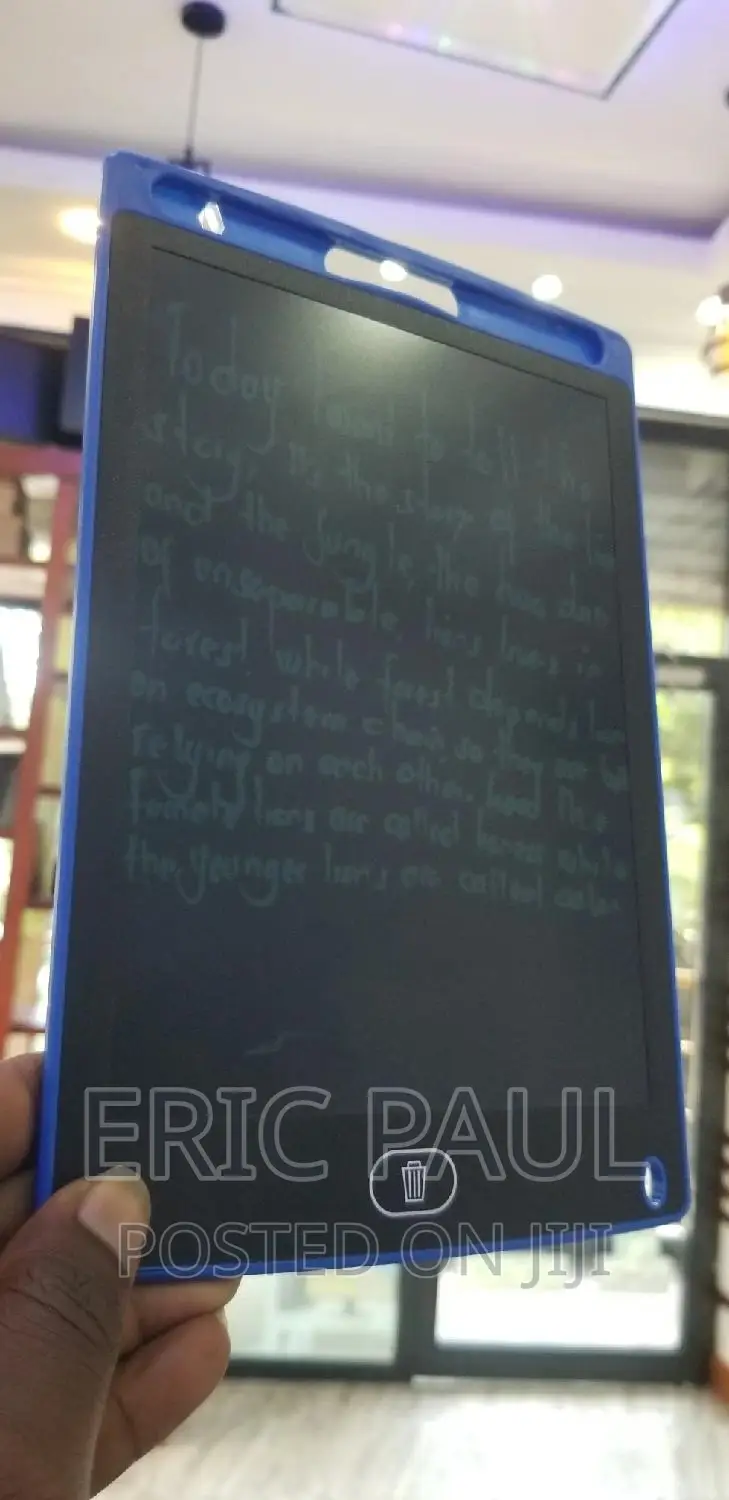 Today I want to tell the
story. Its the story of the lion
and the jungle, the
of unseparable, lions lives in
forest while forest depends
on ecosystem chain, so they are
relying on each other.
female lions are called lioness while
the younger lions are called cubs.
ERIC PAUL
POSTED ON JIJI